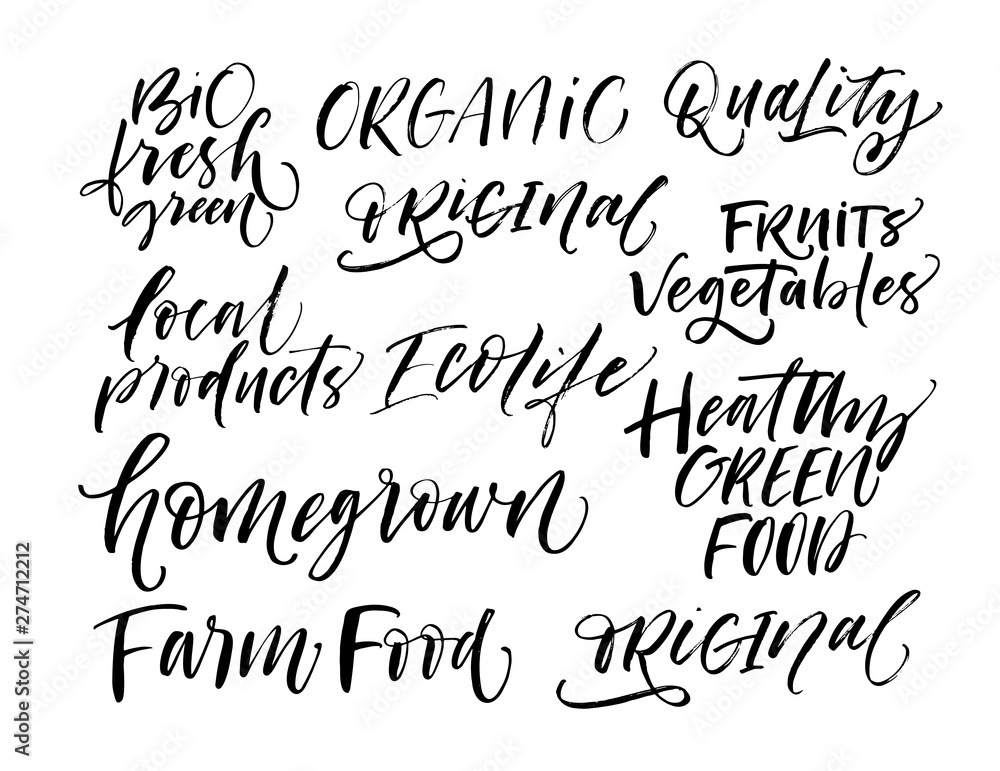 BiO
fresh
green
ORGANiC
QuaLity
ORiGINal
FRuiTS
Vegetables
local
products
EcOLife
Healthy
GREEN
FOOD
homegrown
Farm Food
ORiGINal
Adobe Stock | #274712212